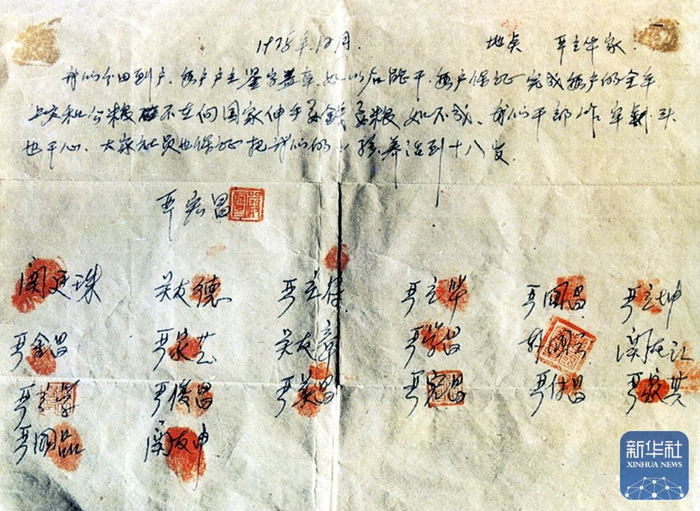 1978年12月. 地点 严立华家.
我们分田到户，每户户主签字盖章，如以后能干，每户保证完成每户的全年
上交和公粮 不在向国家伸手要钱要粮 如不成，我们干部作牢刹头
也干心，大家社员也保证把我们的小孩养活到十八岁.
严宏昌
关廷珠 关友德 严立符 严立华 严国昌 严立坤
严金昌 严家芝 关友章 严学昌 韩国云 关友江
严立学 严俊昌 严美昌 严宏昌 严付昌 严家其
严国品 关友申
新华社
XINHUA NEWS